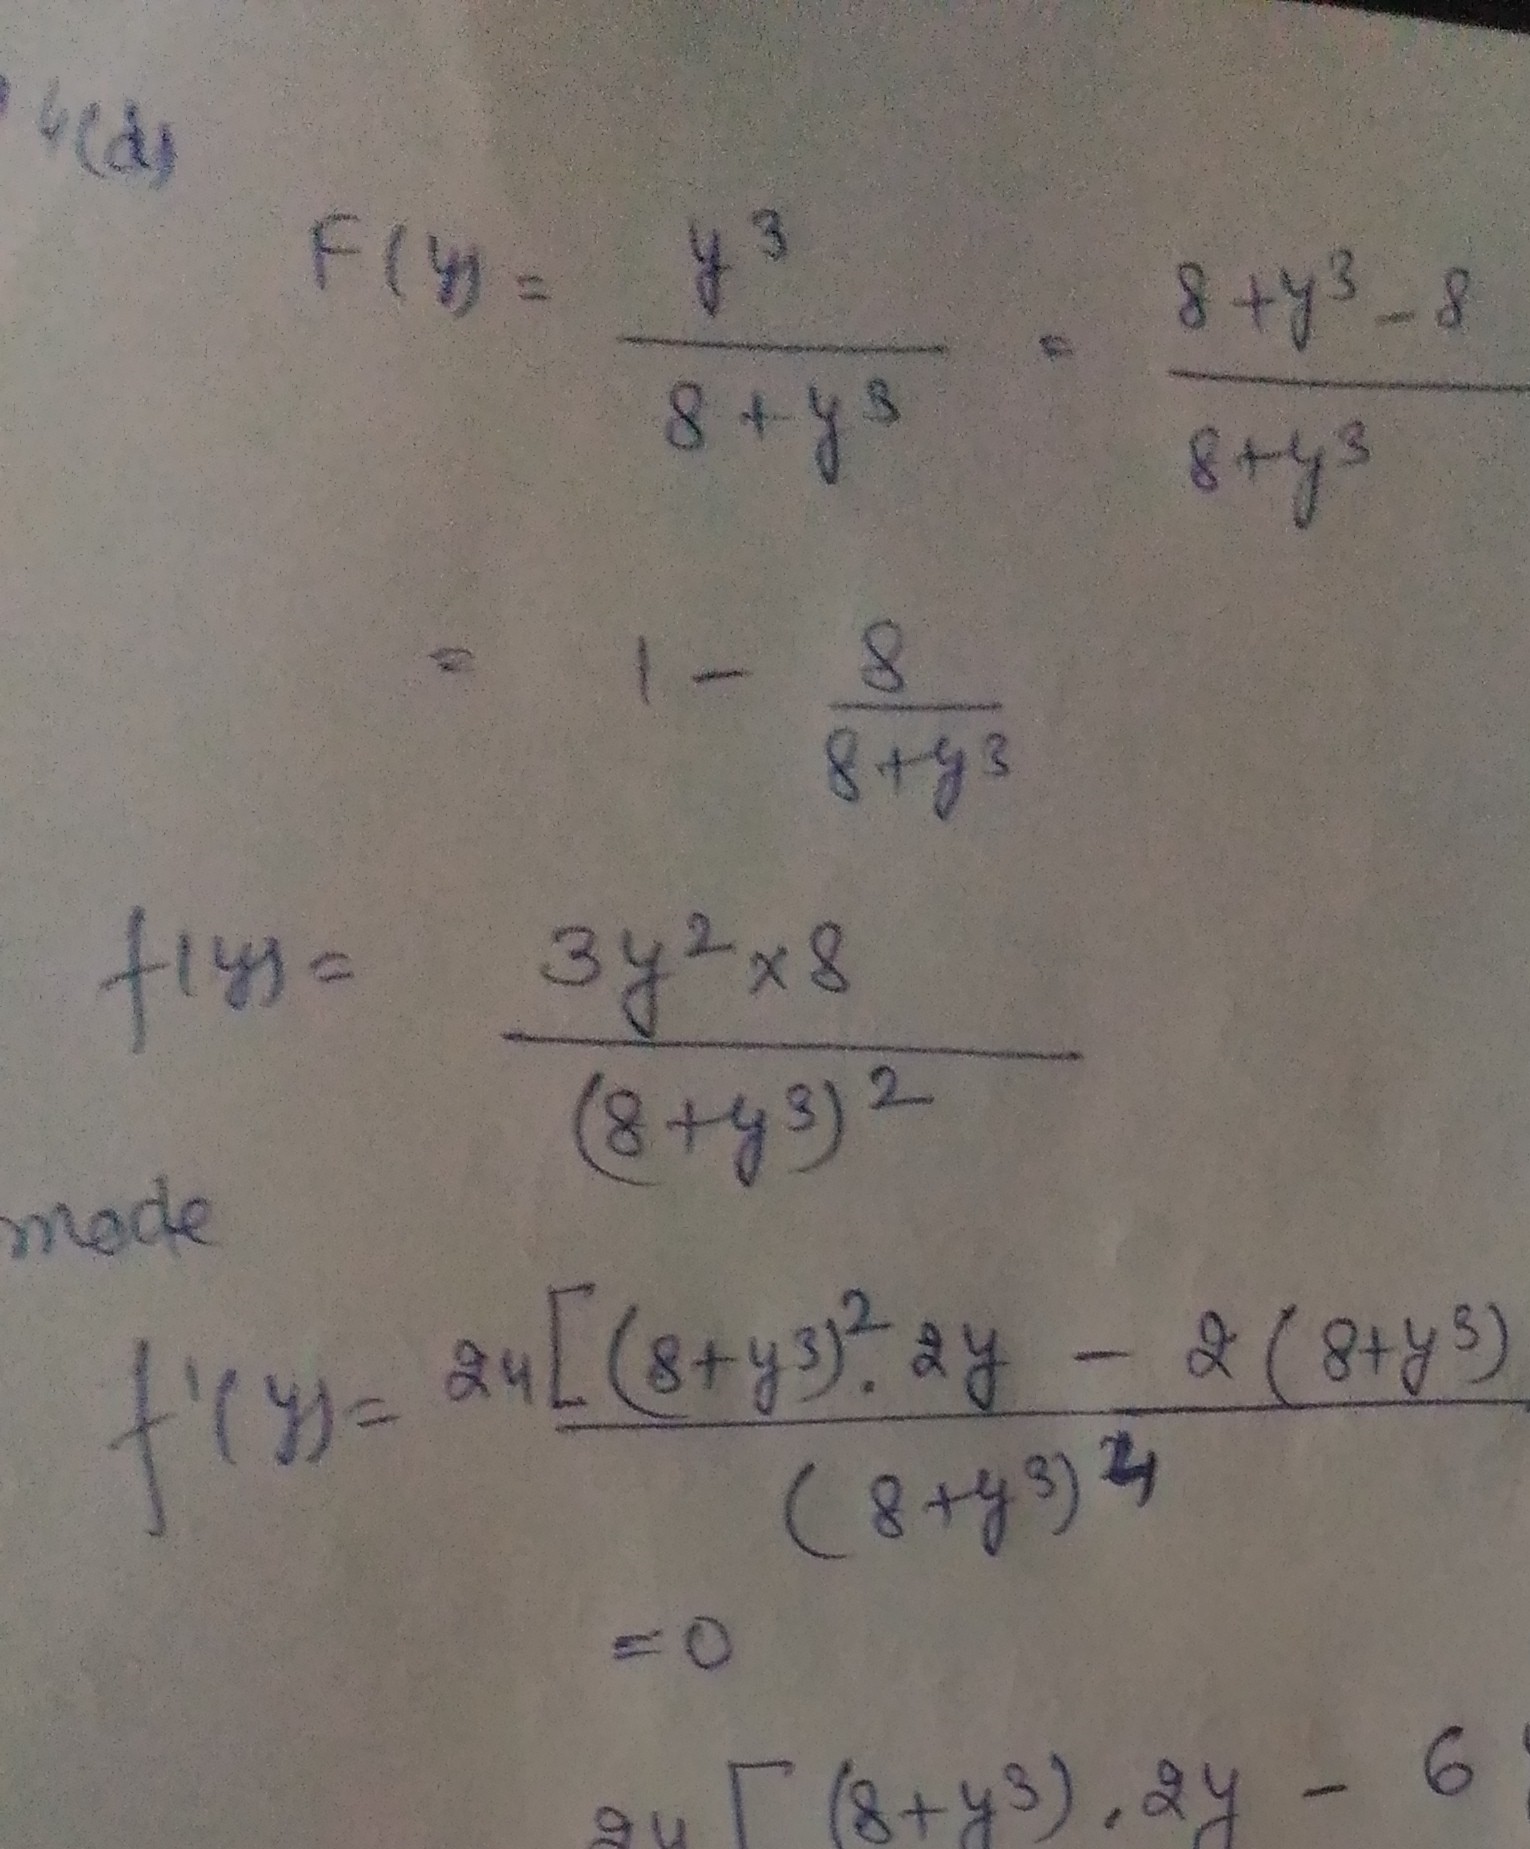 4(d)
F(y) = y³ / (8 + y³) = (8 + y³ - 8) / (8 + y³)
= 1 - 8 / (8 + y³)
f(y) = 3y² × 8 / (8 + y³)²
mode
f'(y) = 24[(8 + y³)². 2y - 2(8 + y³) / (8 + y³)⁴
= 0
24[(8 + y³). 2y - 6